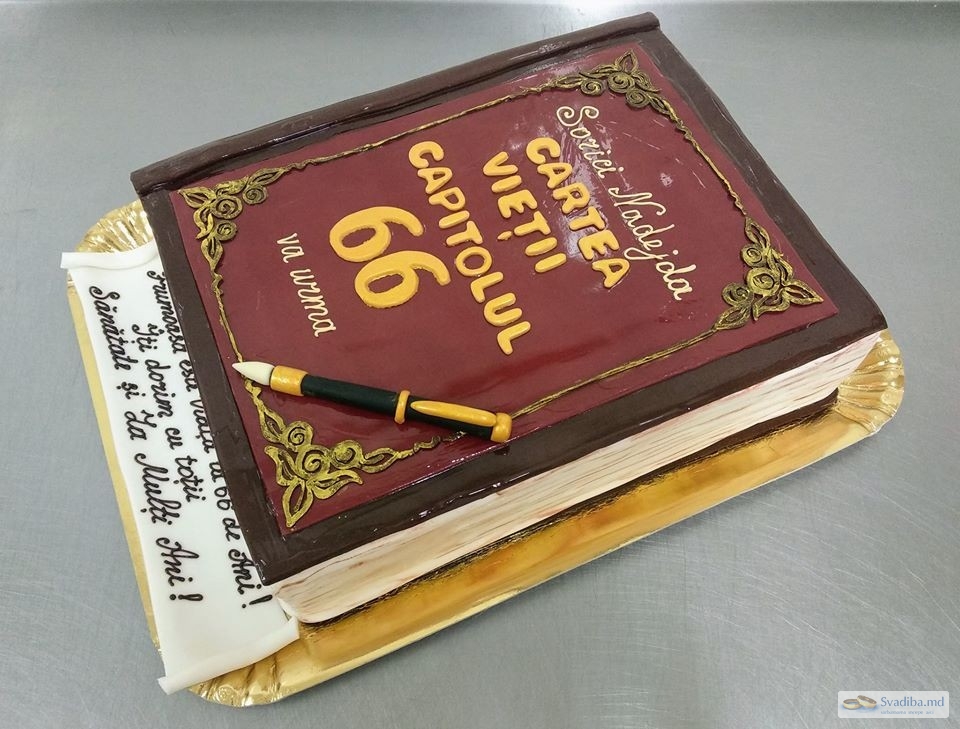 Sorici Nadejda
CARTEA
VIEȚII
CAPITOLUL
66
va urma
Frumoasă este viața la 66 de Ani!
Îți dorim cu toții
Sănătate și La Mulți Ani!
Svadiba.md